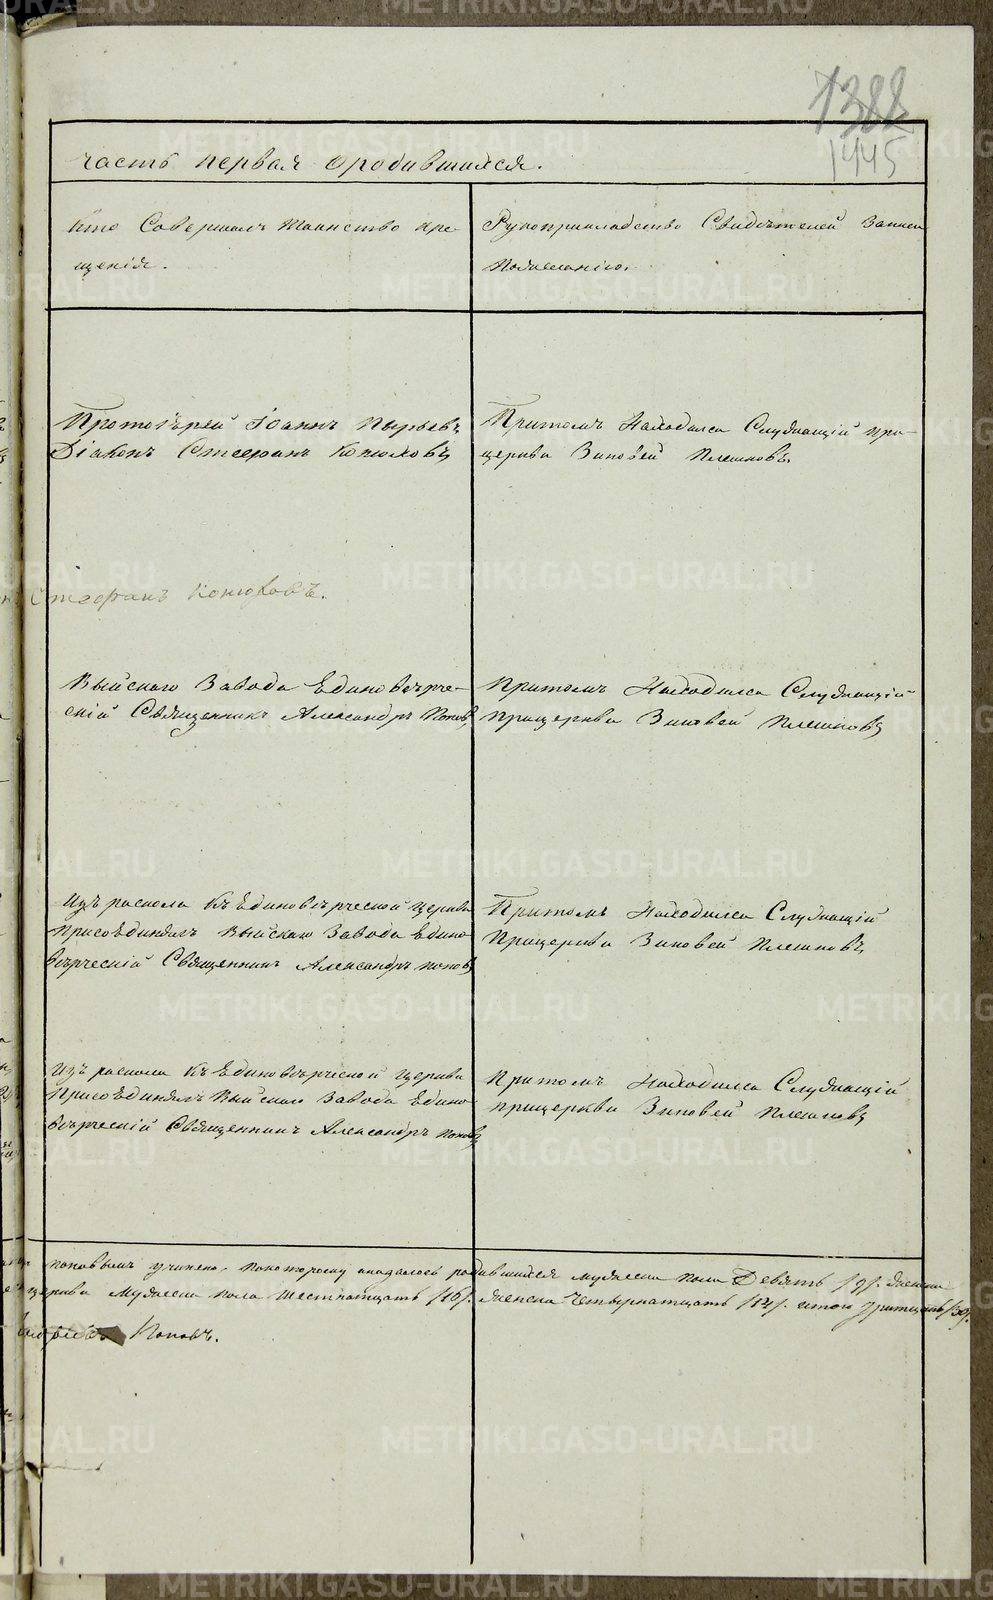 1388
1445
часть первая о родившихся.
Кто Совершалъ таинство кре-
щенія.
Рукоприкладство Свидѣтелей записи
по желанію.
Протоіерей Іоаннъ Пырьевъ
Діаконъ Стефанъ Конюховъ
Притомъ Находился Служащій при
церкви Зиновей Плешковъ
Стефанъ Конюховъ.
Выйскаго Завода Единовѣрче-
скій Священникъ Александръ Поповъ
Притомъ Находился Служащій
при церкви Зиновей Плешковъ
Изъ раскола къ Единовѣрческой церкви
присоединялъ Выйскаго Завода Едино-
вѣрческій Священникъ Александръ Поповъ
Притомъ Находился Служащій
При церкви Зиновей Плешковъ
Изъ раскола къ Единовѣрческой церкви
присоединялъ Выйскаго Завода Едино-
вѣрческій Священникъ Александръ Поповъ
Притомъ Находился Служащій
при церкви Зиновей Плешковъ
Поповымъ учинено, по которому оказалось родившихся мужеска пола Девять /9/. женска
церкви мужеска пола шестнатцать /16/. женска четырнатцать /14/. итого тритцать /30/.
Поповъ.
METRIKI.GASO-URAL.RU